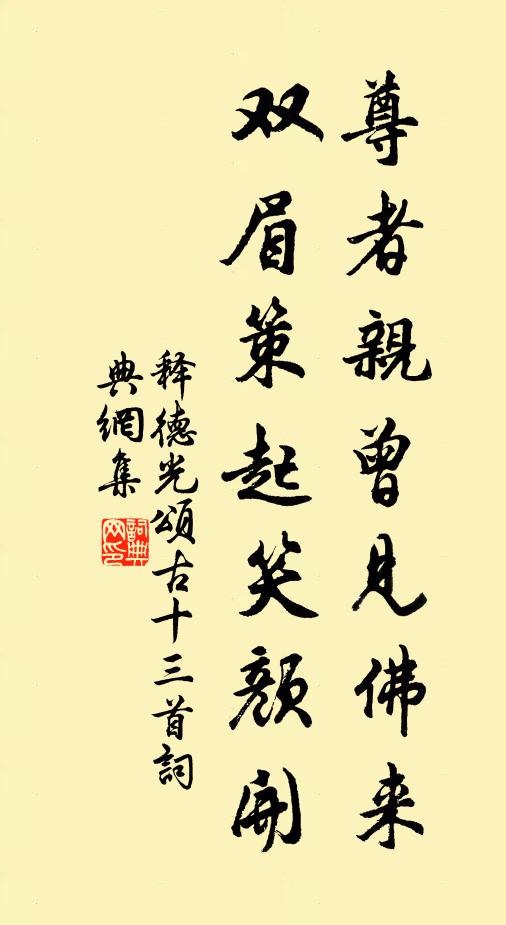 尊者親曾見佛来
双眉策起笑顔開
释德光頌古十三首詞
典網集
詞典網印